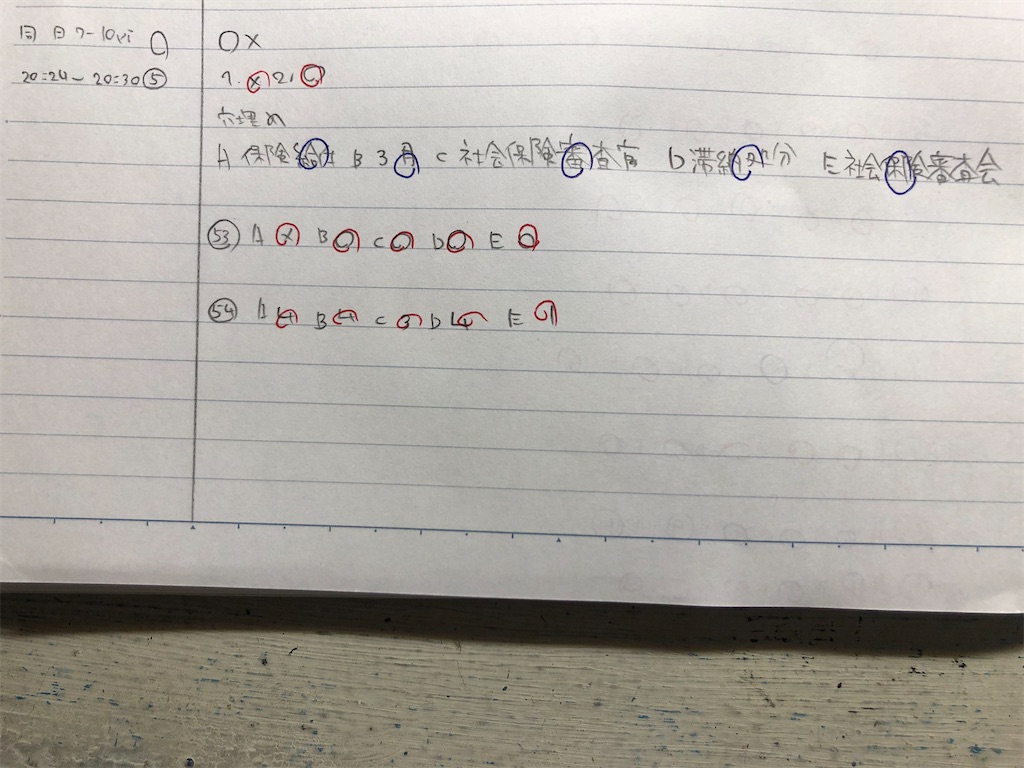 20:24~20:30⑤
○×
1. × 2. ○
穴埋め
A 保険給付 B 3月 C 社会保険審査官 D 滞納処分 E 社会保険審査会
53 A × B ○ C ○ D ○ E ○
54 A B C D E